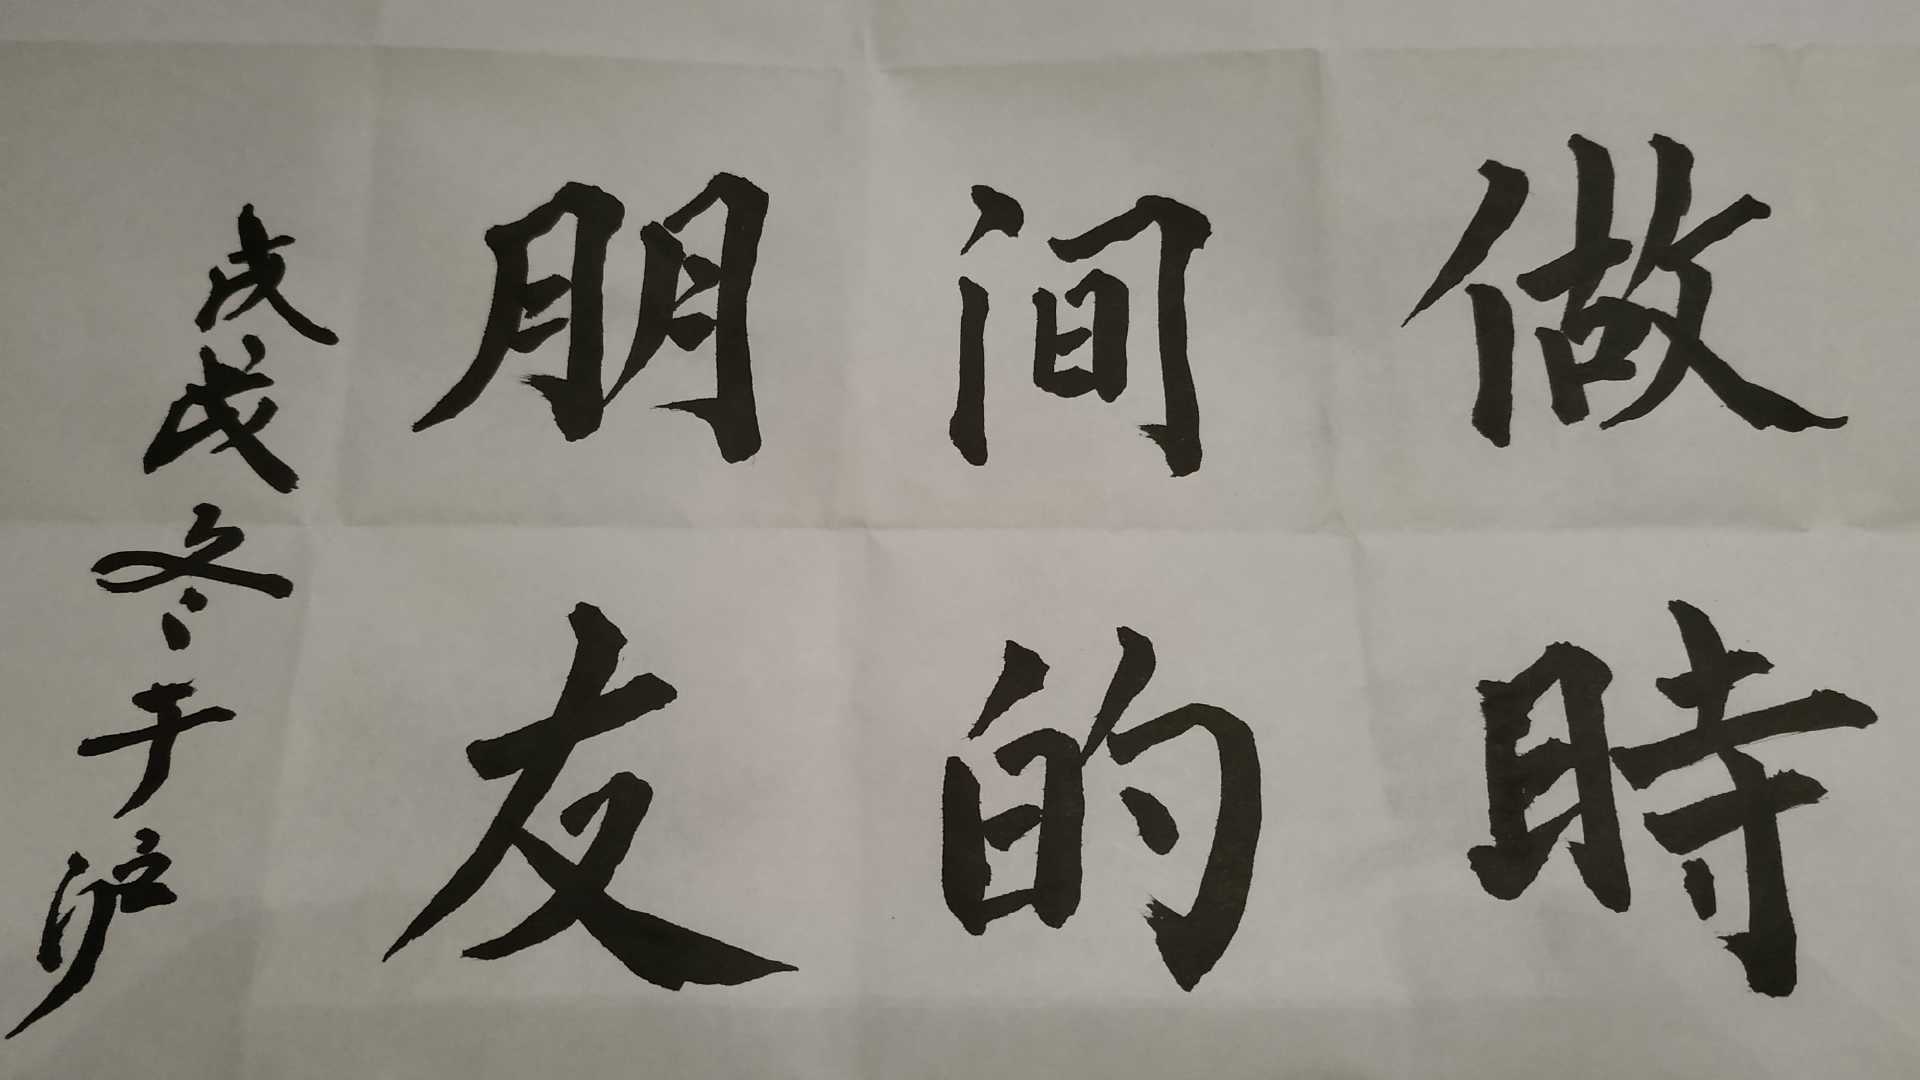 做時
间的
朋友
戊戌冬于沪